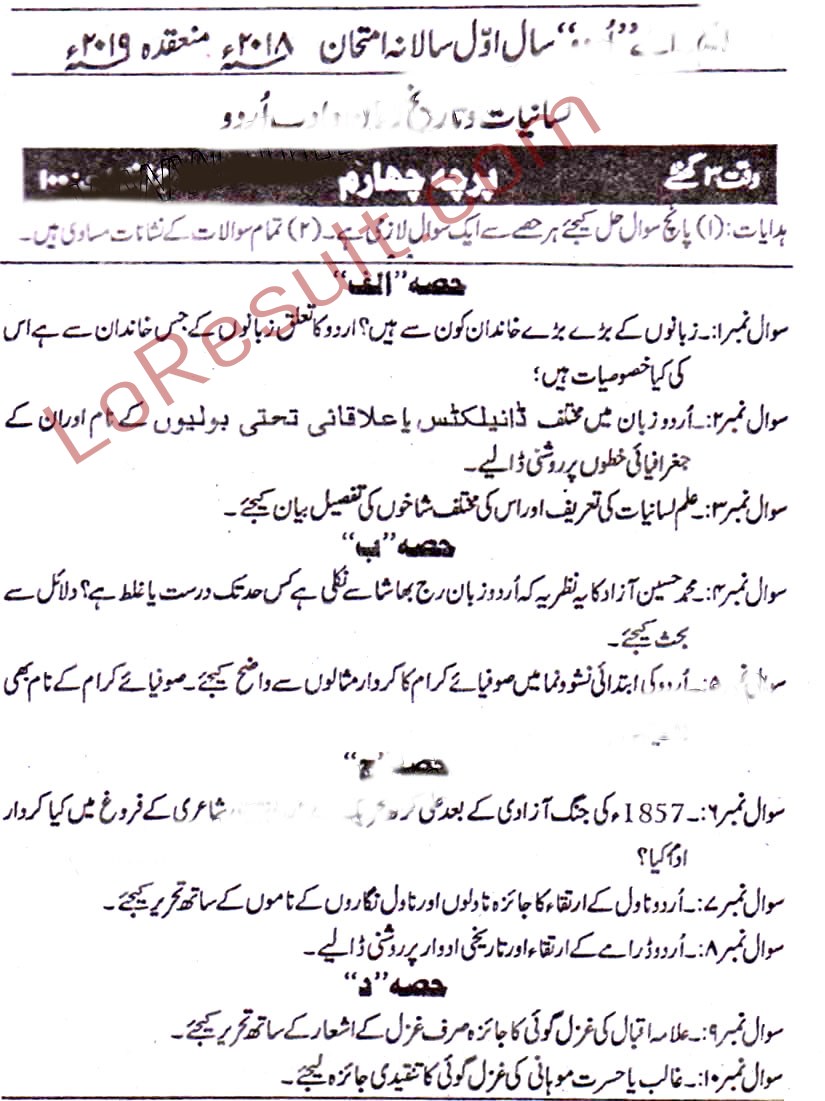 ”اُردو“ سال اوّل سالانہ امتحان ۲۰۱۸ء منعقدہ ۲۰۱۹ء
لسانیات و تاریخ ادب اُردو
وقت ۳ گھنٹے پرچہ چہارم ۱۰۰
ہدایات: (۱) پانچ سوال حل کیجئے ہر حصے سے ایک سوال لازمی ہے۔ (۲) تمام سوالات کے نشانات مساوی ہیں۔
حصہ ”الف“
سوال نمبر۱:۔ زبانوں کے بڑے بڑے خاندان کون سے ہیں؟ اردو کا تعلق زبانوں کے جس خاندان سے ہے اس
کی کیا خصوصیات ہیں؛
سوال نمبر۲:۔ اُردو زبان میں مختلف ڈائیلکٹس یا علاقائی تحتی بولیوں کے نام اور ان کے
جغرافیائی خطوں پر روشنی ڈالیے۔
سوال نمبر۳:۔ علم لسانیات کی تعریف اور اس کی مختلف شاخوں کی تفصیل بیان کیجئے۔
حصہ ”ب“
سوال نمبر۴:۔ محمد حسین آزاد کا یہ نظریہ کہ اُردو زبان رج بھاشا سے نکلی ہے کس حد تک درست یا غلط ہے؟ دلائل سے
بحث کیجئے۔
سوال نمبر۵:۔ اُردو کی ابتدائی نشوونما میں صوفیائے کرام کا کردار مثالوں سے واضح کیجئے۔ صوفیائے کرام کے نام بھی
حصہ ”ج“
سوال نمبر۶:۔ 1857ء کی جنگ آزادی کے بعد علی گڑھ شاعری کے فروغ میں کیا کردار
ادا کیا؟
سوال نمبر۷:۔ اُردو ناول کے ارتقاء کا جائزہ ناولوں اور ناول نگاروں کے ناموں کے ساتھ تحریر کیجئے۔
سوال نمبر۸:۔ اُردو ڈرامے کے ارتقاء اور تاریخی ادوار پر روشنی ڈالیے۔
حصہ ”د“
سوال نمبر۹:۔ علامہ اقبال کی غزل گوئی کا جائزہ صرف غزل کے اشعار کے ساتھ تحریر کیجئے۔
سوال نمبر۱۰:۔ غالب یا حسرت موہانی کی غزل گوئی کا تنقیدی جائزہ لیجئے۔
LoResult.com